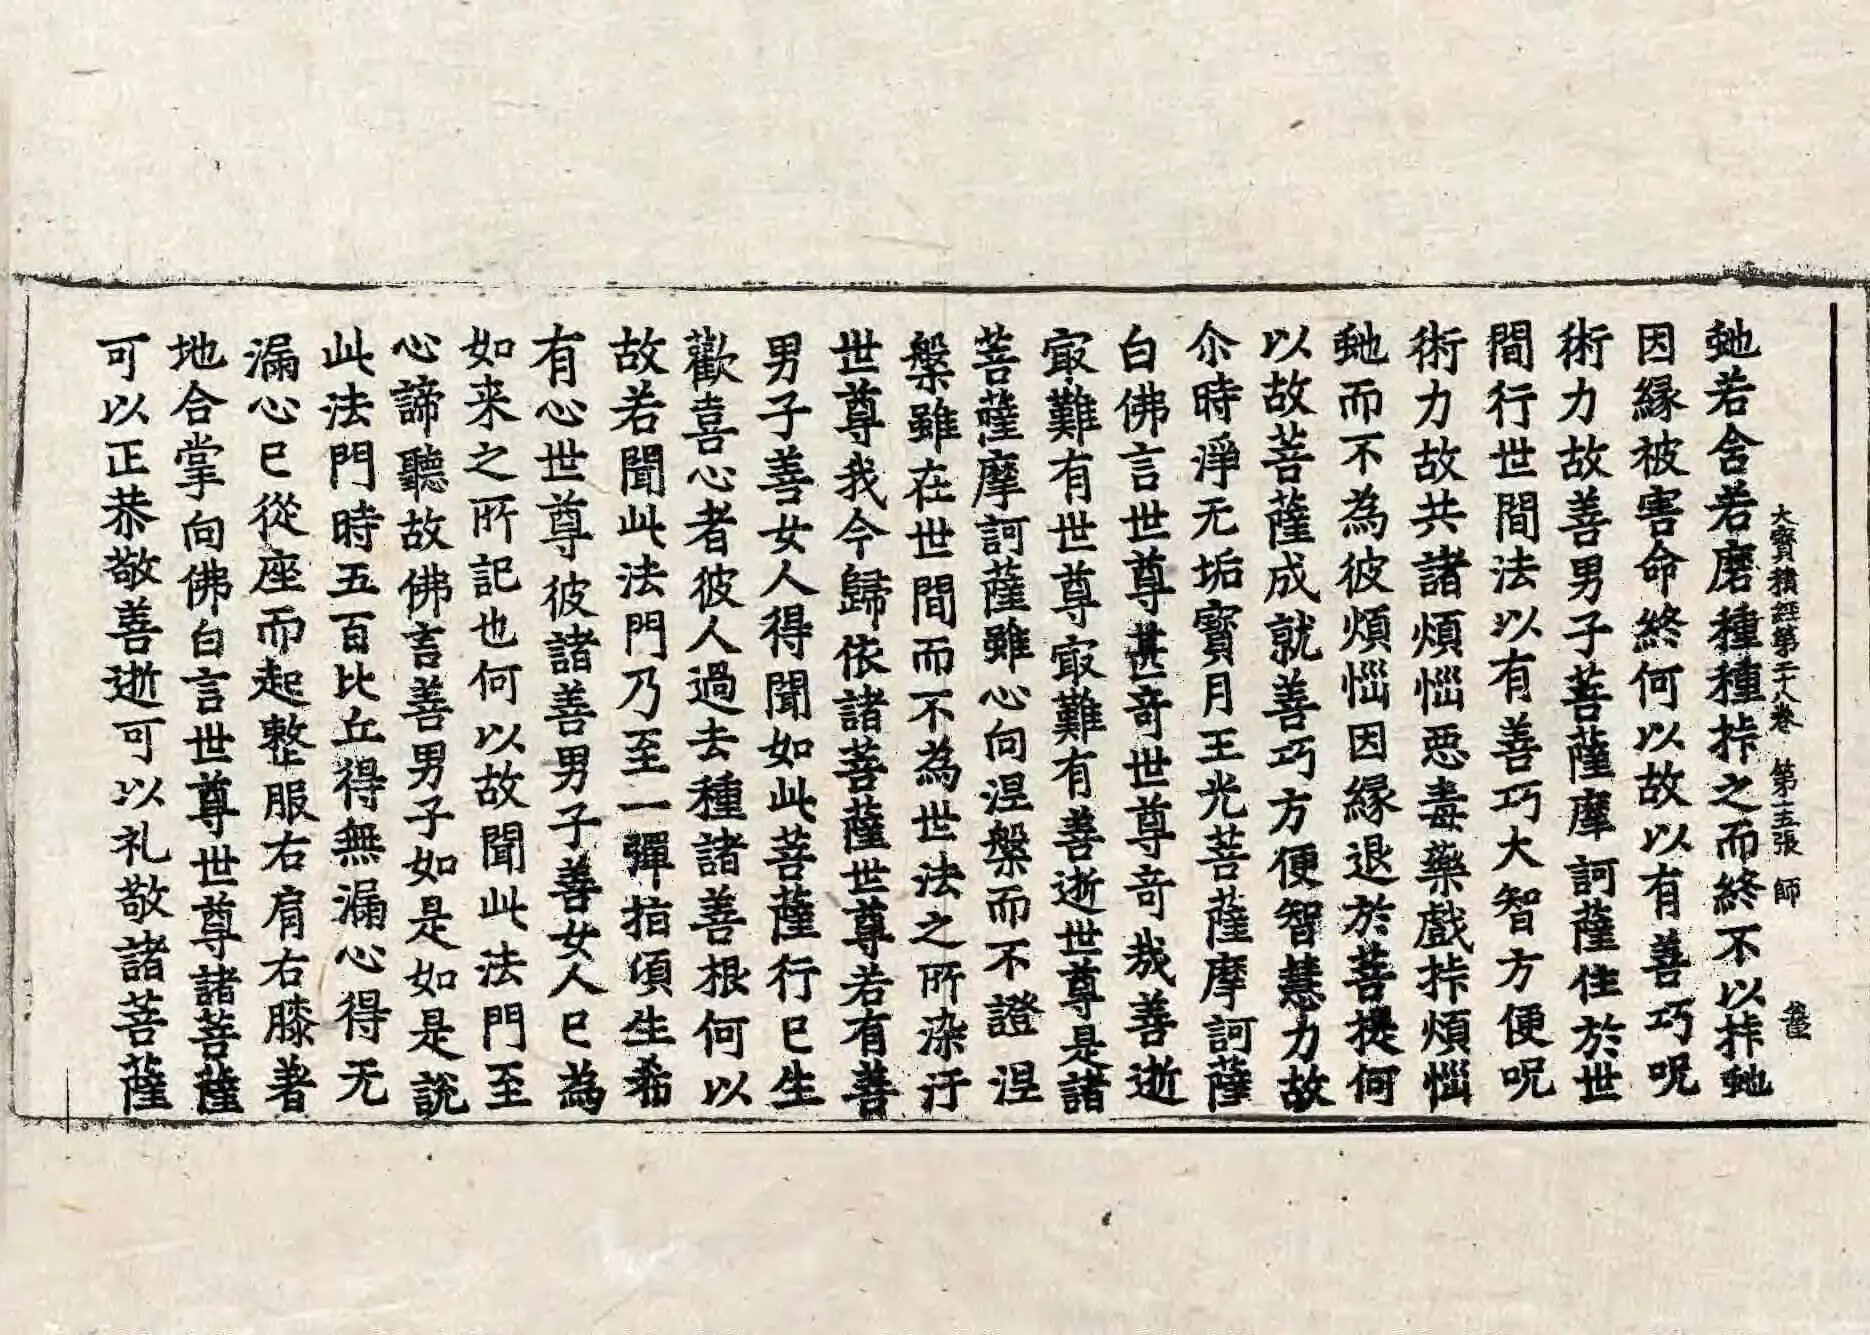 大寶積經第二十八卷 第十五張 師
虵若舍若磨種種挊之而終不以挊虵
因縁被害命終何以故以有善巧呪
術力故善男子菩薩摩訶薩住於世
間行世間法以有善巧大智方便呪
術力故共諸煩惱惡毒藥戲挊煩惱
虵而不為彼煩惱因縁退於菩提何
以故菩薩成就善巧方便智慧力故
尒時淨无垢寶月王光菩薩摩訶薩
白佛言世尊甚奇世尊奇哉善逝
㝡難有世尊㝡難有善逝世尊是諸
菩薩摩訶薩雖心向涅槃而不證涅
槃雖在世間而不為世法之所染汙
世尊我今歸依諸菩薩世尊若有善
男子善女人得聞如此菩薩行已生
歡喜心者彼人過去種諸善根何以
故若聞此法門乃至一彈指頃生希
有心世尊彼諸善男子善女人已為
如来之所記也何以故聞此法門至
心諦聽故佛言善男子如是如是說
此法門時五百比丘得無漏心得无
漏心已從座而起整服右肩右膝著
地合掌向佛白言世尊世尊諸菩薩
可以正恭敬善逝可以礼敬諸菩薩